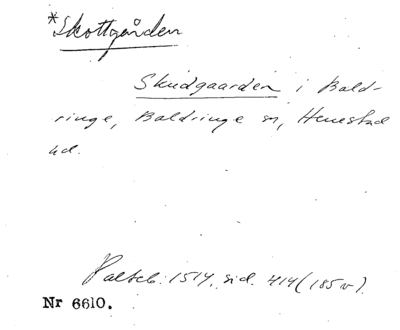 *Skottgården
Skudgaarden i Bald-
ringe, Baldringe sn, Herrestad
hd.
Palteb. 1514, sid. 414 (185 v).
Nr 6610.